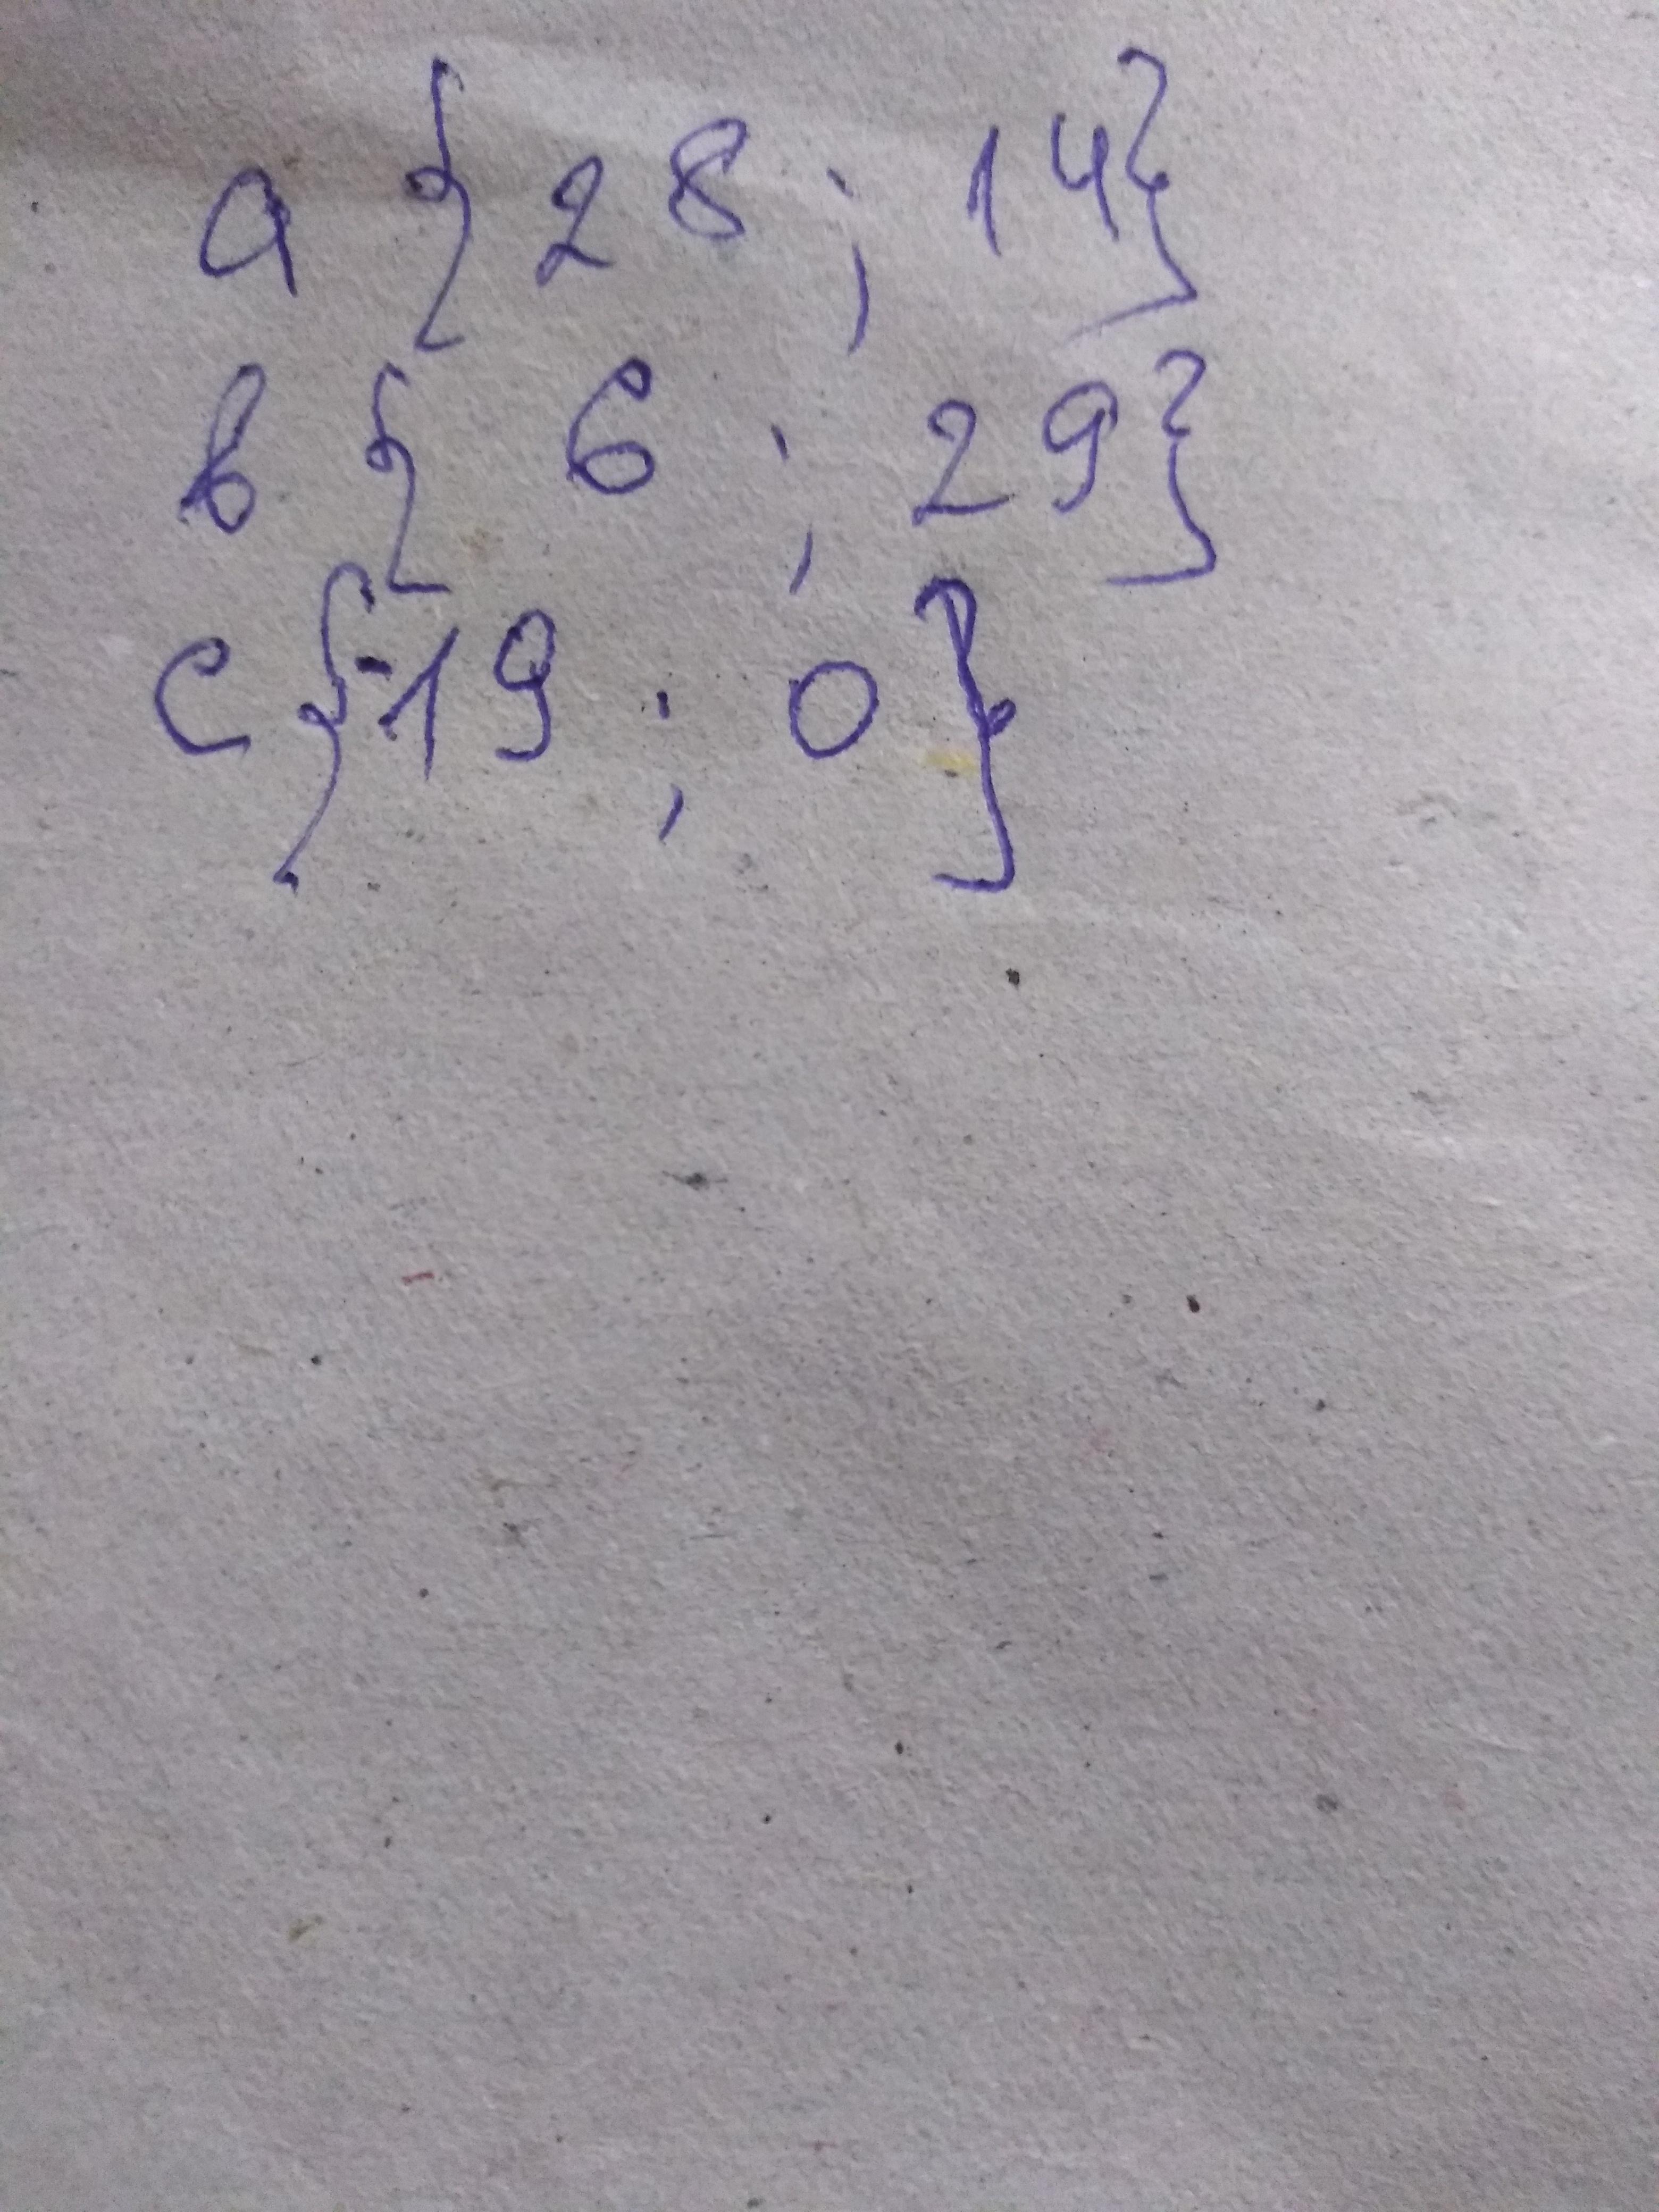 a {28 ; 14}
b { 6 ; 29}
c {-19 ; 0 }